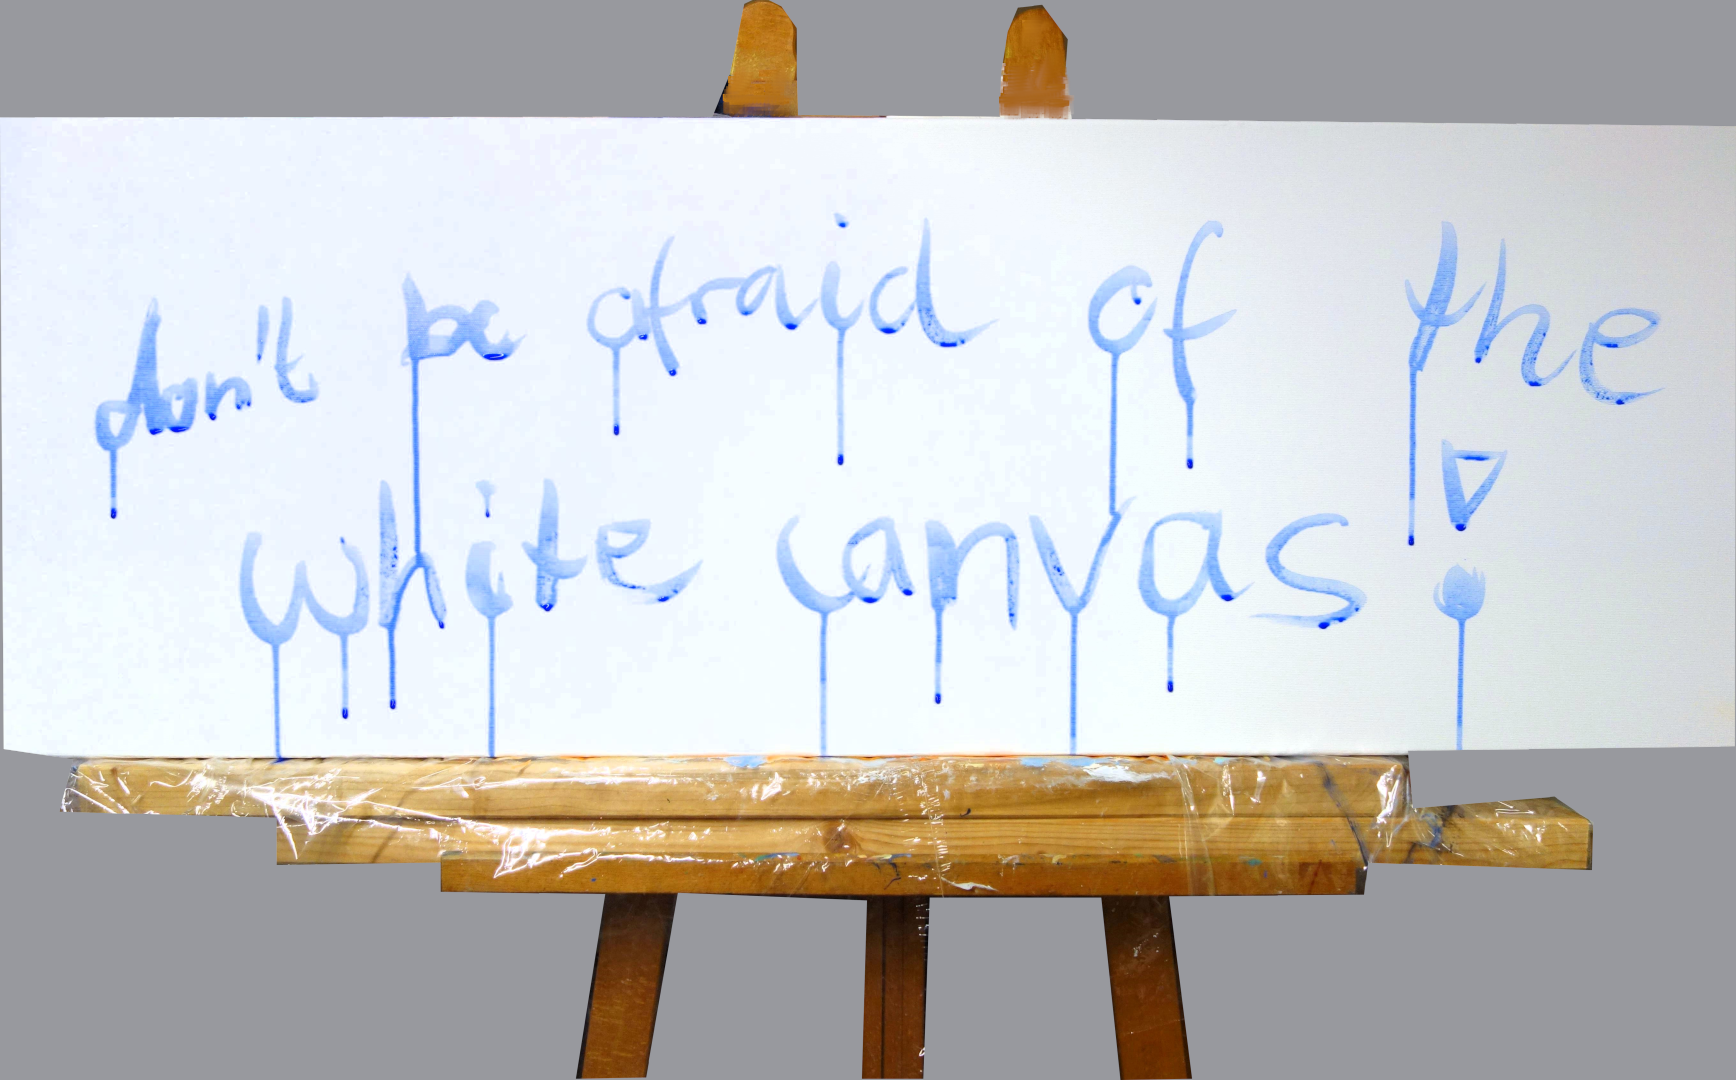 don't be afraid of the
white canvas!